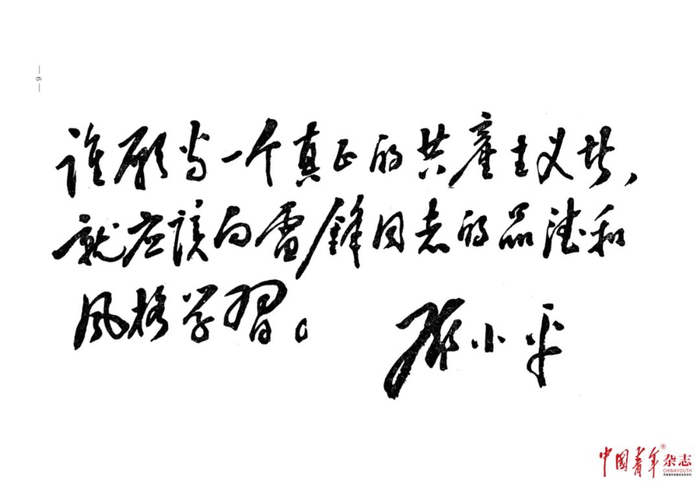 —6—
谁愿当一个真正的共產主义者，
就应该向雷锋同志的品德和
风格学習。
邓小平
中国青年®杂志
CHINAYOUTH